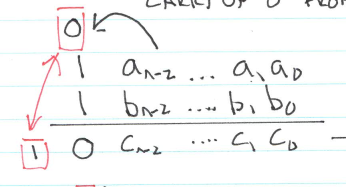 CARRY OF 0 FROM
0
1 aₙ₋₂ ... a₁ a₀
1 bₙ₋₂ .... b₁ b₀
1 0 cₙ₋₂ .... c₁ c₀ –